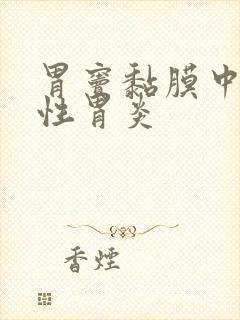 胃窦黏膜中
性胃炎
香煙